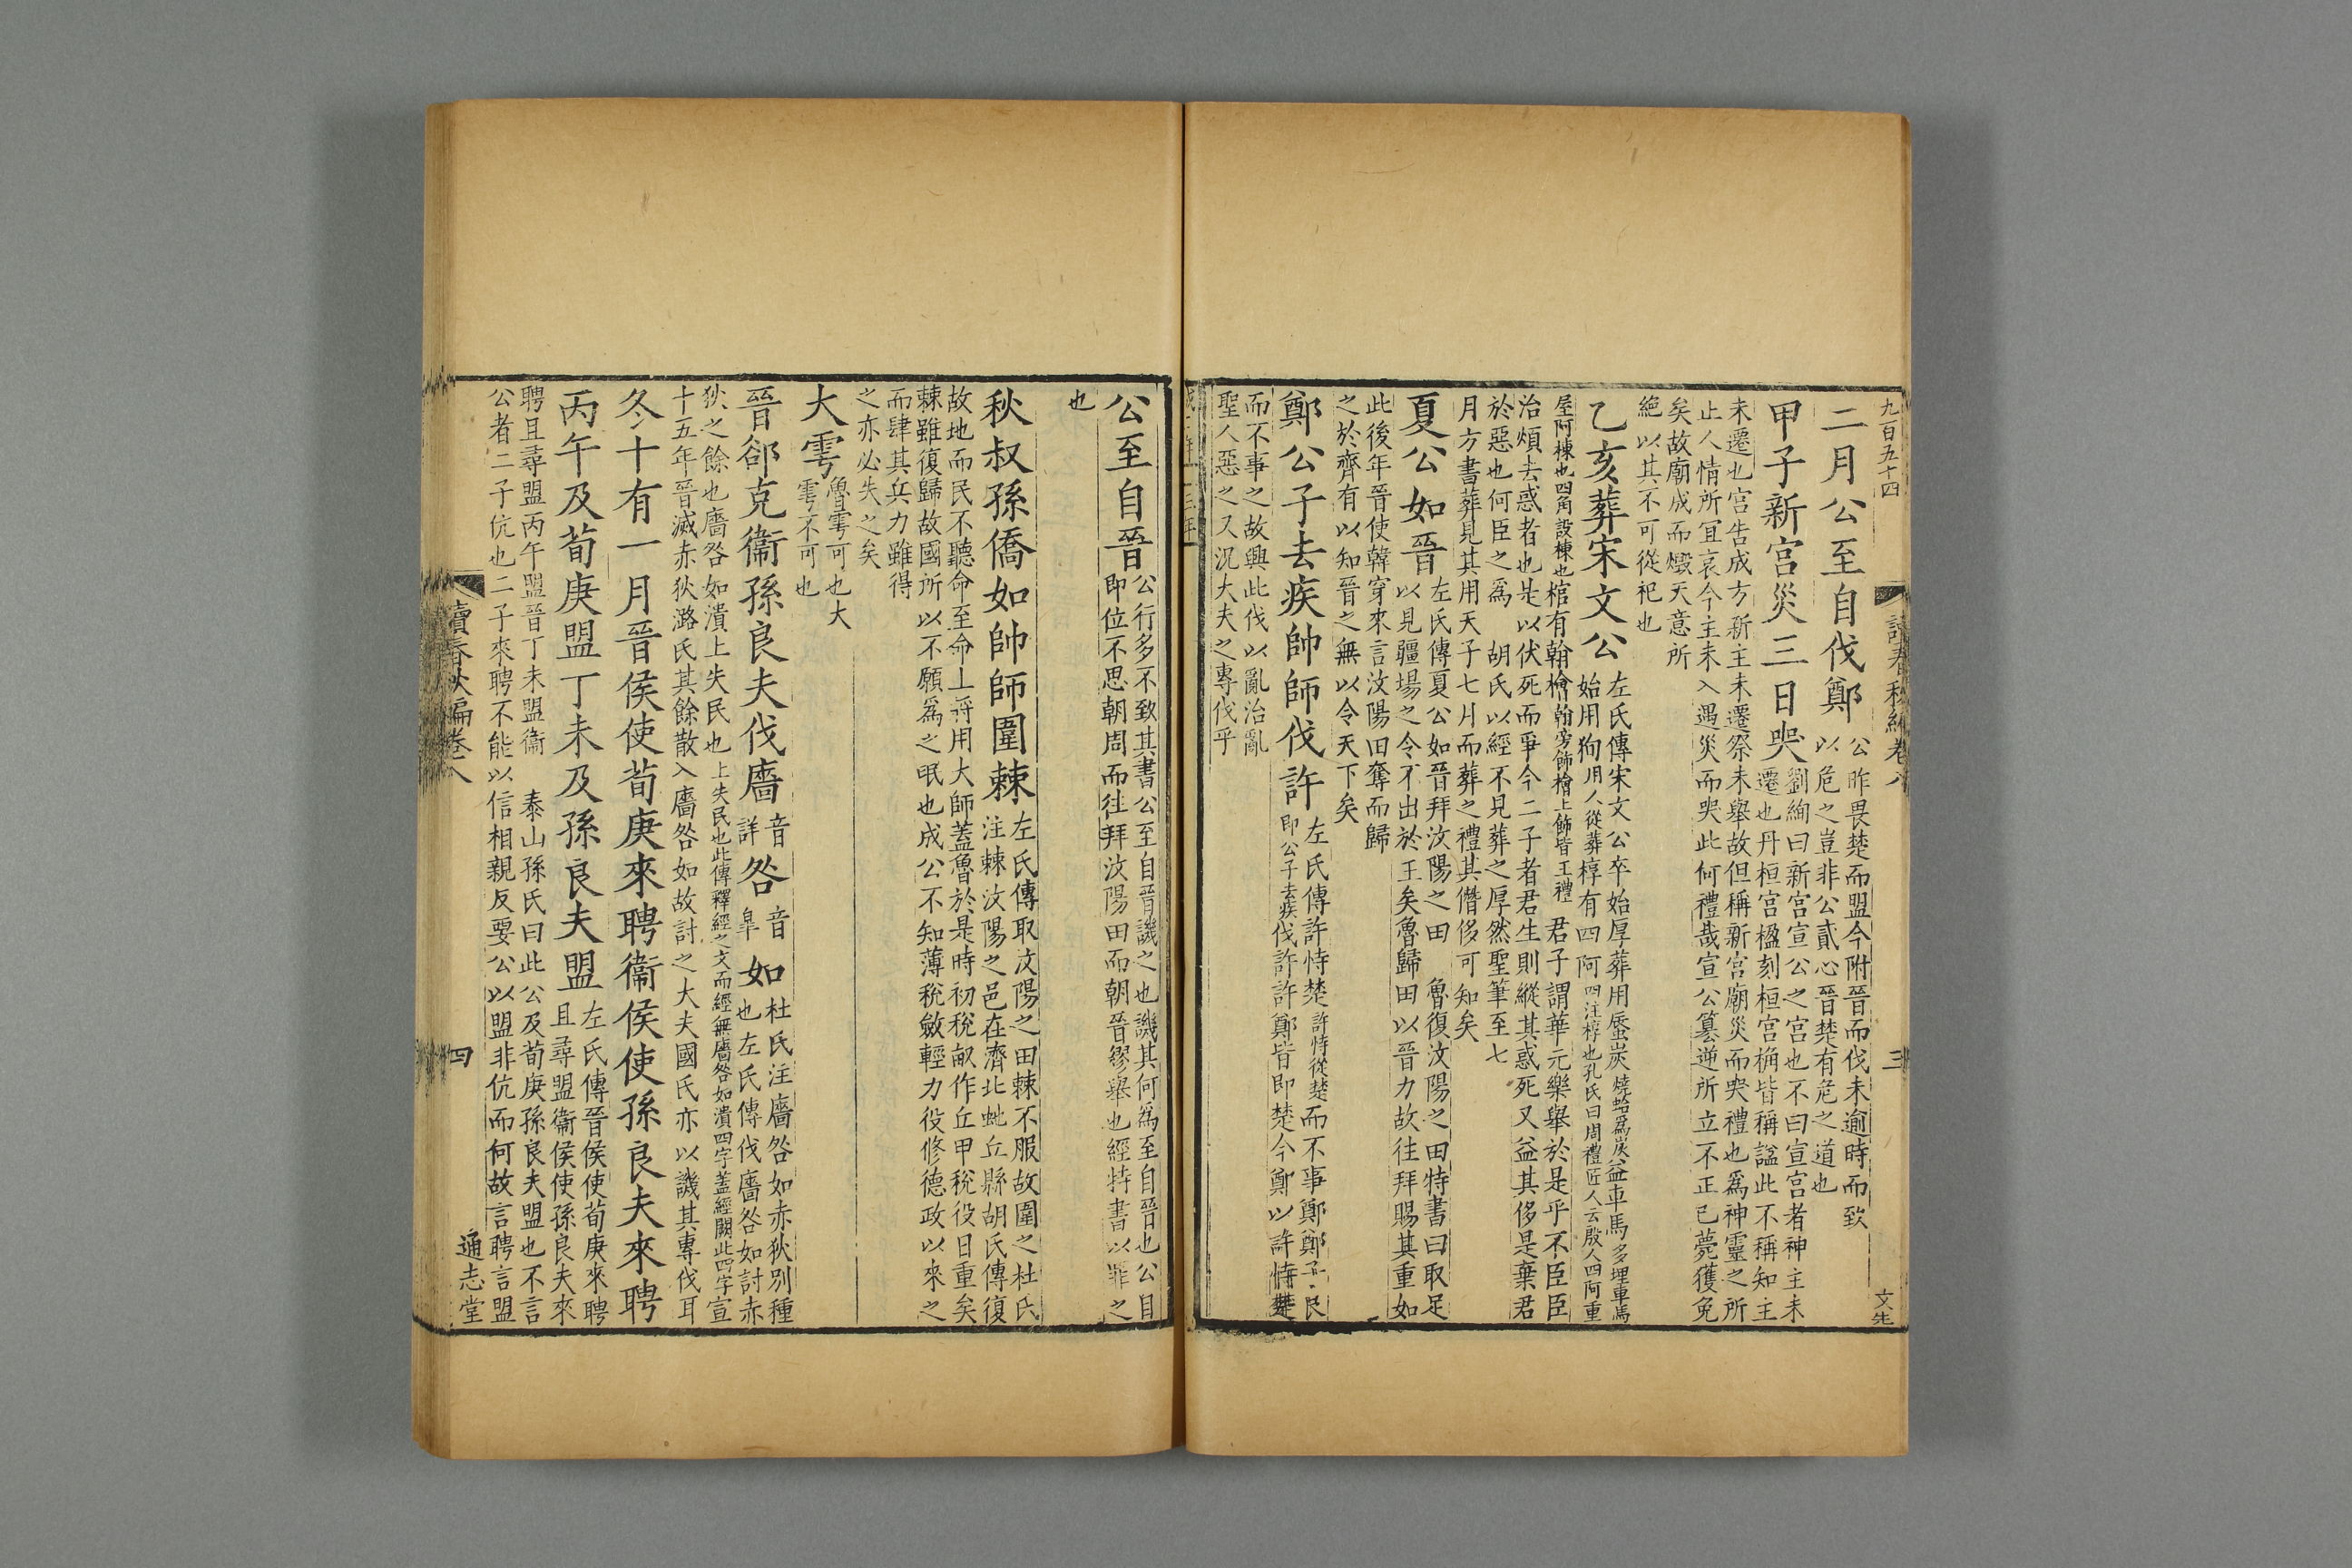 九百五十四
讀春秋編卷八
三
文先
二月公至自伐鄭
公昨畏楚而盟今附晉而伐未逾時而致
以危之豈非公貳心晉楚有危之道也
甲子新宮災三日哭
劉絢曰新宮宣公之宮也不曰宣宮者神主未
遷也丹桓宮楹刻桓宮桷皆稱謚此不稱知主
未遷也宮告成方新主未遷祭未舉故但稱新宮廟災而哭禮也爲神靈之所
止人情所冝哀今主未入遇災而哭此何禮哉宣公簒逆所立不正已薨獲免
矣故廟成而燬天意所
絕以其不可從祀也
乙亥葬宋文公
左氏傳宋文公卒始厚葬用蜃炭燒蛤爲炭益車馬多埋車馬
始用狥用人從葬椁有四阿四注椁也孔氏曰周禮匠人云殷人四阿重
屋阿棟也四角設棟也棺有翰檜翰旁飾檜上飾皆王禮君子謂華元樂舉於是乎不臣臣
治煩去惑者也是以伏死而爭今二子者君生則縱其惑死又益其侈是棄君
於惡也何臣之爲 胡氏以經不見葬之厚然聖筆至七
月方書葬見其用天子七月而葬之禮其僭侈可知矣
夏公如晉
左氏傳夏公如晉拜汶陽之田 魯復汶陽之田特書曰取足
以見疆場之令不出於王矣魯歸田以晉力故往拜賜其重如
此後年晉使韓穿來言汶陽田奪而歸
之於齊有以知晉之無以令天下矣
鄭公子去疾帥師伐許
左氏傳許恃楚許恃從楚而不事鄭鄭子良
即公子去疾伐許許鄭皆即楚今鄭以許恃楚
而不事之故興此伐以亂治亂
聖人惡之又況大夫之專伐乎
公至自晉
公行多不致其書公至自晉譏之也譏其何爲至自晉也公自
即位不思朝周而往拜汶陽田而朝晉繆舉也經特書以罪之
也
秋叔孫僑如帥師圍棘
左氏傳取汶陽之田棘不服故圍之杜氏
注棘汶陽之邑在濟北虵丘縣胡氏傳復
故地而民不聽命至命上將用大師蓋魯於是時初稅畝作丘甲稅役日重矣
棘雖復歸故國所以不願爲之氓也成公不知薄稅斂輕力役修德政以來之
而肆其兵力雖得
之亦必失之矣
大雩
魯雩可也大
雩不可也
晉郤克衞孫良夫伐廧音詳咎音皐如
杜氏注廧咎如赤狄別種
也左氏傳伐廧咎如討赤
狄之餘也廧咎如潰上失民也上失民也此傳釋經之文而經無廧咎如潰四字蓋經闕此四字宣
十五年晉滅赤狄潞氏其餘散入廧咎如故討之大夫國氏亦以譏其專伐耳
冬十有一月晉侯使荀庚來聘衞侯使孫良夫來聘
丙午及荀庚盟丁未及孫良夫盟
左氏傳晉侯使荀庚來聘
且尋盟衞侯使孫良夫來
聘且尋盟丙午盟晉丁未盟衞 泰山孫氏曰此公及荀庚孫良夫盟也不言
公者二子伉也二子來聘不能以信相親反要公以盟非伉而何故言聘言盟
讀春秋編卷八
四
通志堂